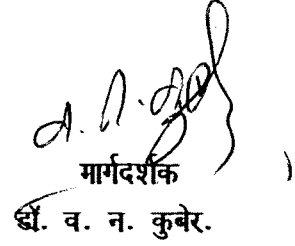 मार्गदर्शक
डॉ. व. न. कुबेर.